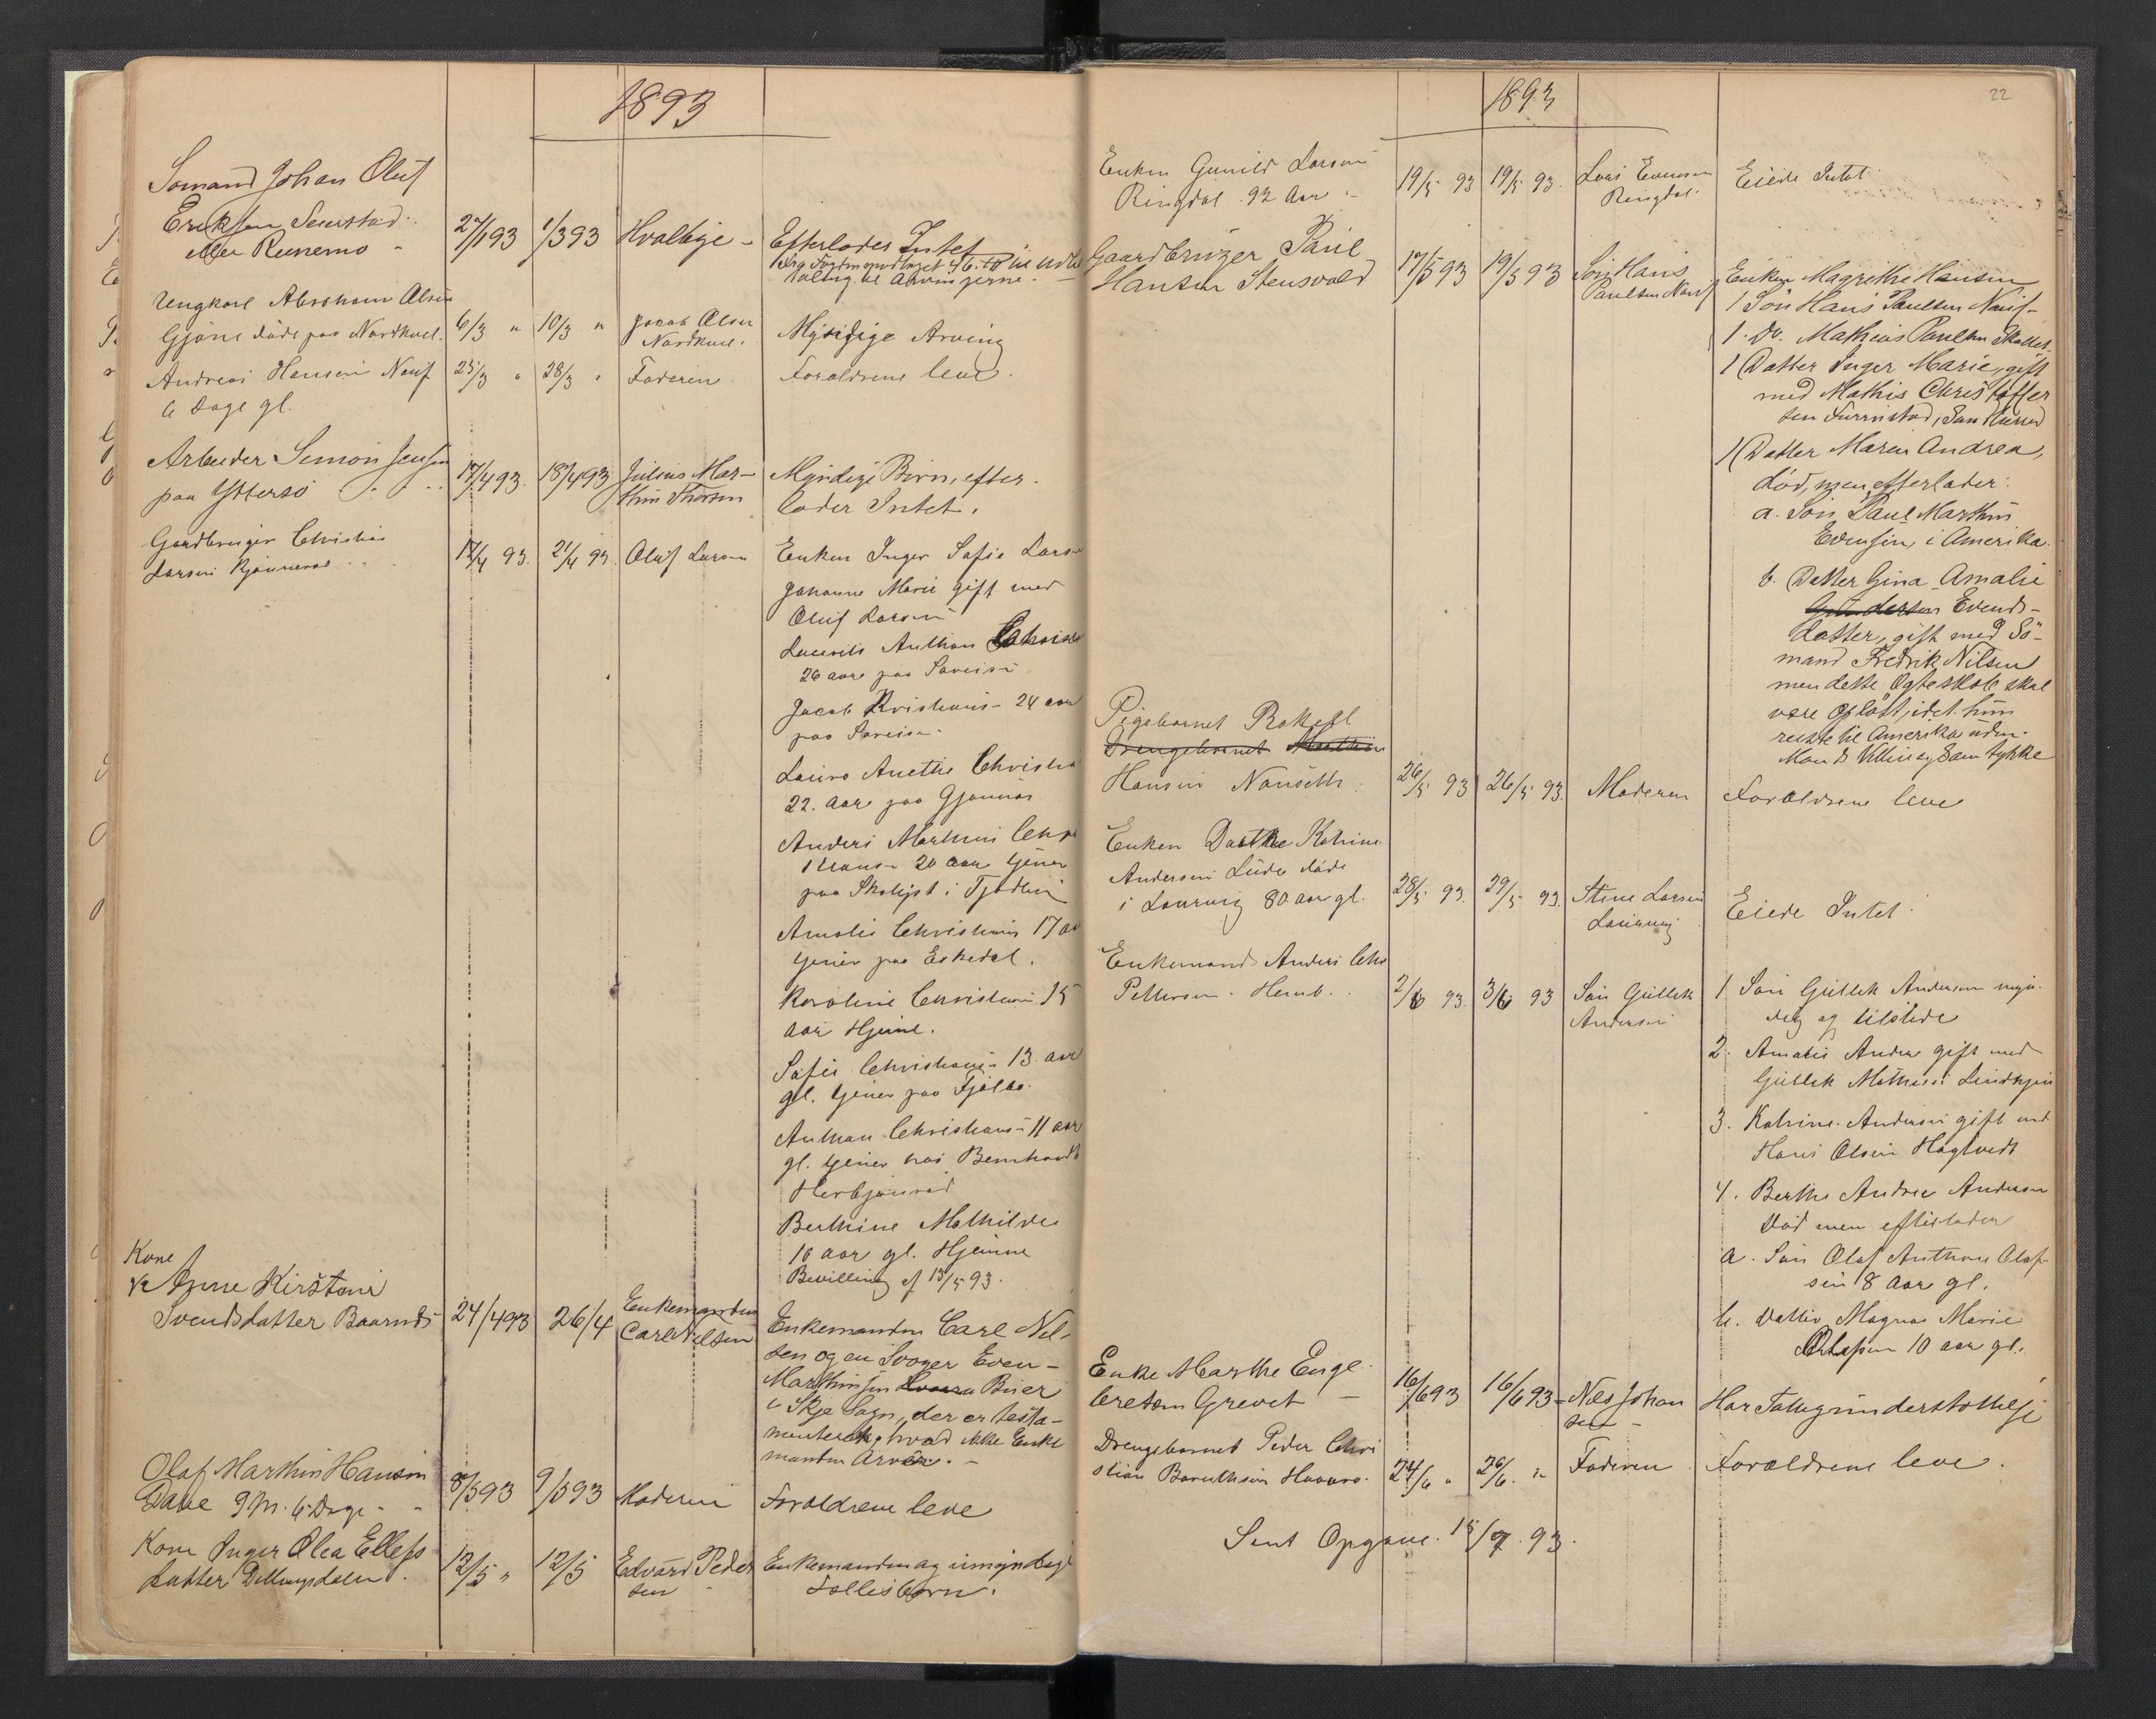 1893
Sömand Johan Oluf
Eriksen Seierstad
27/1 93 1/3 93 Hvalbye - Efterlader Intet
Ungkarl Abraham Olsen
Gjöne döde paa Nordkvel. 6/3 " 10/3 " Jacob Olsen Myndige Arving
Nordkvel.
Andreas Hansen Nauf 25/3 " 28/3 " Faderen Forældrene leve.
6 Dage gl.
Arbeider Simon Jensen
paa Yttersö 17/4 93. 18/4 93 Julius Mar- Myndige Börn, efter-
thin Thorsen lader Intet.
Gaardbruger Christian
Larsen 17/4 93. 21/4 93 Oluf Larsen Enken Inger Sofie Larsen
Johanne Marie gift med
Oluf Larsen
Laurits Anthon
26 aar paa
Jacob Kristians- 24 aar
paa
Laura Anethe Christia
22. Aar paa Gjönnes
Anders Marthin Chr
20 aar tjener
paa i Tjödling
Amalie Christians 17 aar
tjener paa Eskedal.
Karoline Christians 15
aar Hjeme.
Sofie Christians- 13 aar
gl. tjener paa Fjelbo.
Anthon Christians- 11 aar
gl. tjener hos Bernhardt
Herbjönröd
Berthine Mathilde
10 aar gl. Hjemme
Bevilling af 13/5 93.
Kone
Anne Kirstine
Svendsdatter 24/4 93 26/4 Enkemanden
Carl Nilsen Enkemanden Carl Nil-
sen og en Svoger Even -
Marthinsen Bner
i Skje Sogn, der er testa-
menteret hvad ikke Enke
manden Arver. -
Olaf Marthin Hansen
9 M. 6 Dage 8/5 93 9/5 93 Moderen Forældrene leve
Kone Inger Olea Ellefs
datter 12/5 " 12/5 Edvard Peder Enkemanden og umyndige
sen Fællesbörn.
1893
22
Enken Gunild Larsen
Ringdal 92 Aar 19/5 93 19/5 93. Lars Evensen Eiede Intet
Ringdal.
Gaardbruger Paul
Hansen Stensvold 17/5 93 19/5 93 Sön Hans
Paulsen Nauf Enken Magrethe Hansen
1 Sön Hans Paulsen Nauf-
1. Do. Mathias Paulsen
1 Datter Inger Marie, gift
med Mathis Christoffer
sen Furrustad, Sandherred
1 Datter Maren Andrea,
död, men efterlader:
a. Sön Paul Marthin
Evensen, i Amerika.
b. Datter Gina Amalie
Evends-
datter, gift med Sö-
mand Fredrik Nilsen
men dette Ægteskab skal
være Oplöst, idet hun
reiste til Amerika uden
Mands Villie og Samtykke
Pigebarnet Rakell
Drengebarnet Marthin
Hansen Nauseth 26/5 93 26/5 93. Moderen Forældrene leve
Enken Dorthe Katrine
Andersen Lunde döde
i Laurvig 80 aar gl. 28/5 93. 29/5 93. Stine Larsen Eiede Intet.
Laurvig
Enkemand Anders Chr
Pettersen Hemb. 2/6 93. 3/6 93 Sön Gullik
Andersen 1. Sön Gullik Andersen myn-
dig og tilstede
2. Amalie Andrea gift med
Gullik Mathisen
3. Katrine Andersen gift med
Hans Olsen Hagtvedt
4. Berthe Andrea Andersen
död men efterlader
a. Sön Olaf Anthon Olaf-
sen 8 Aar gl.
b. Datter Magna Marie
Olafsen 10 aar gl.
Enke Marthe Enge
bretsen Grevet - 16/6 93 16/6 93 - Nils Johan
sen - Har Fattigunderstöttelse
Drengebarnet Peder Chri
stian 24/6 " 26/6. " Faderen Forældrene leve.
Sent Opgave. 15/7. 93.